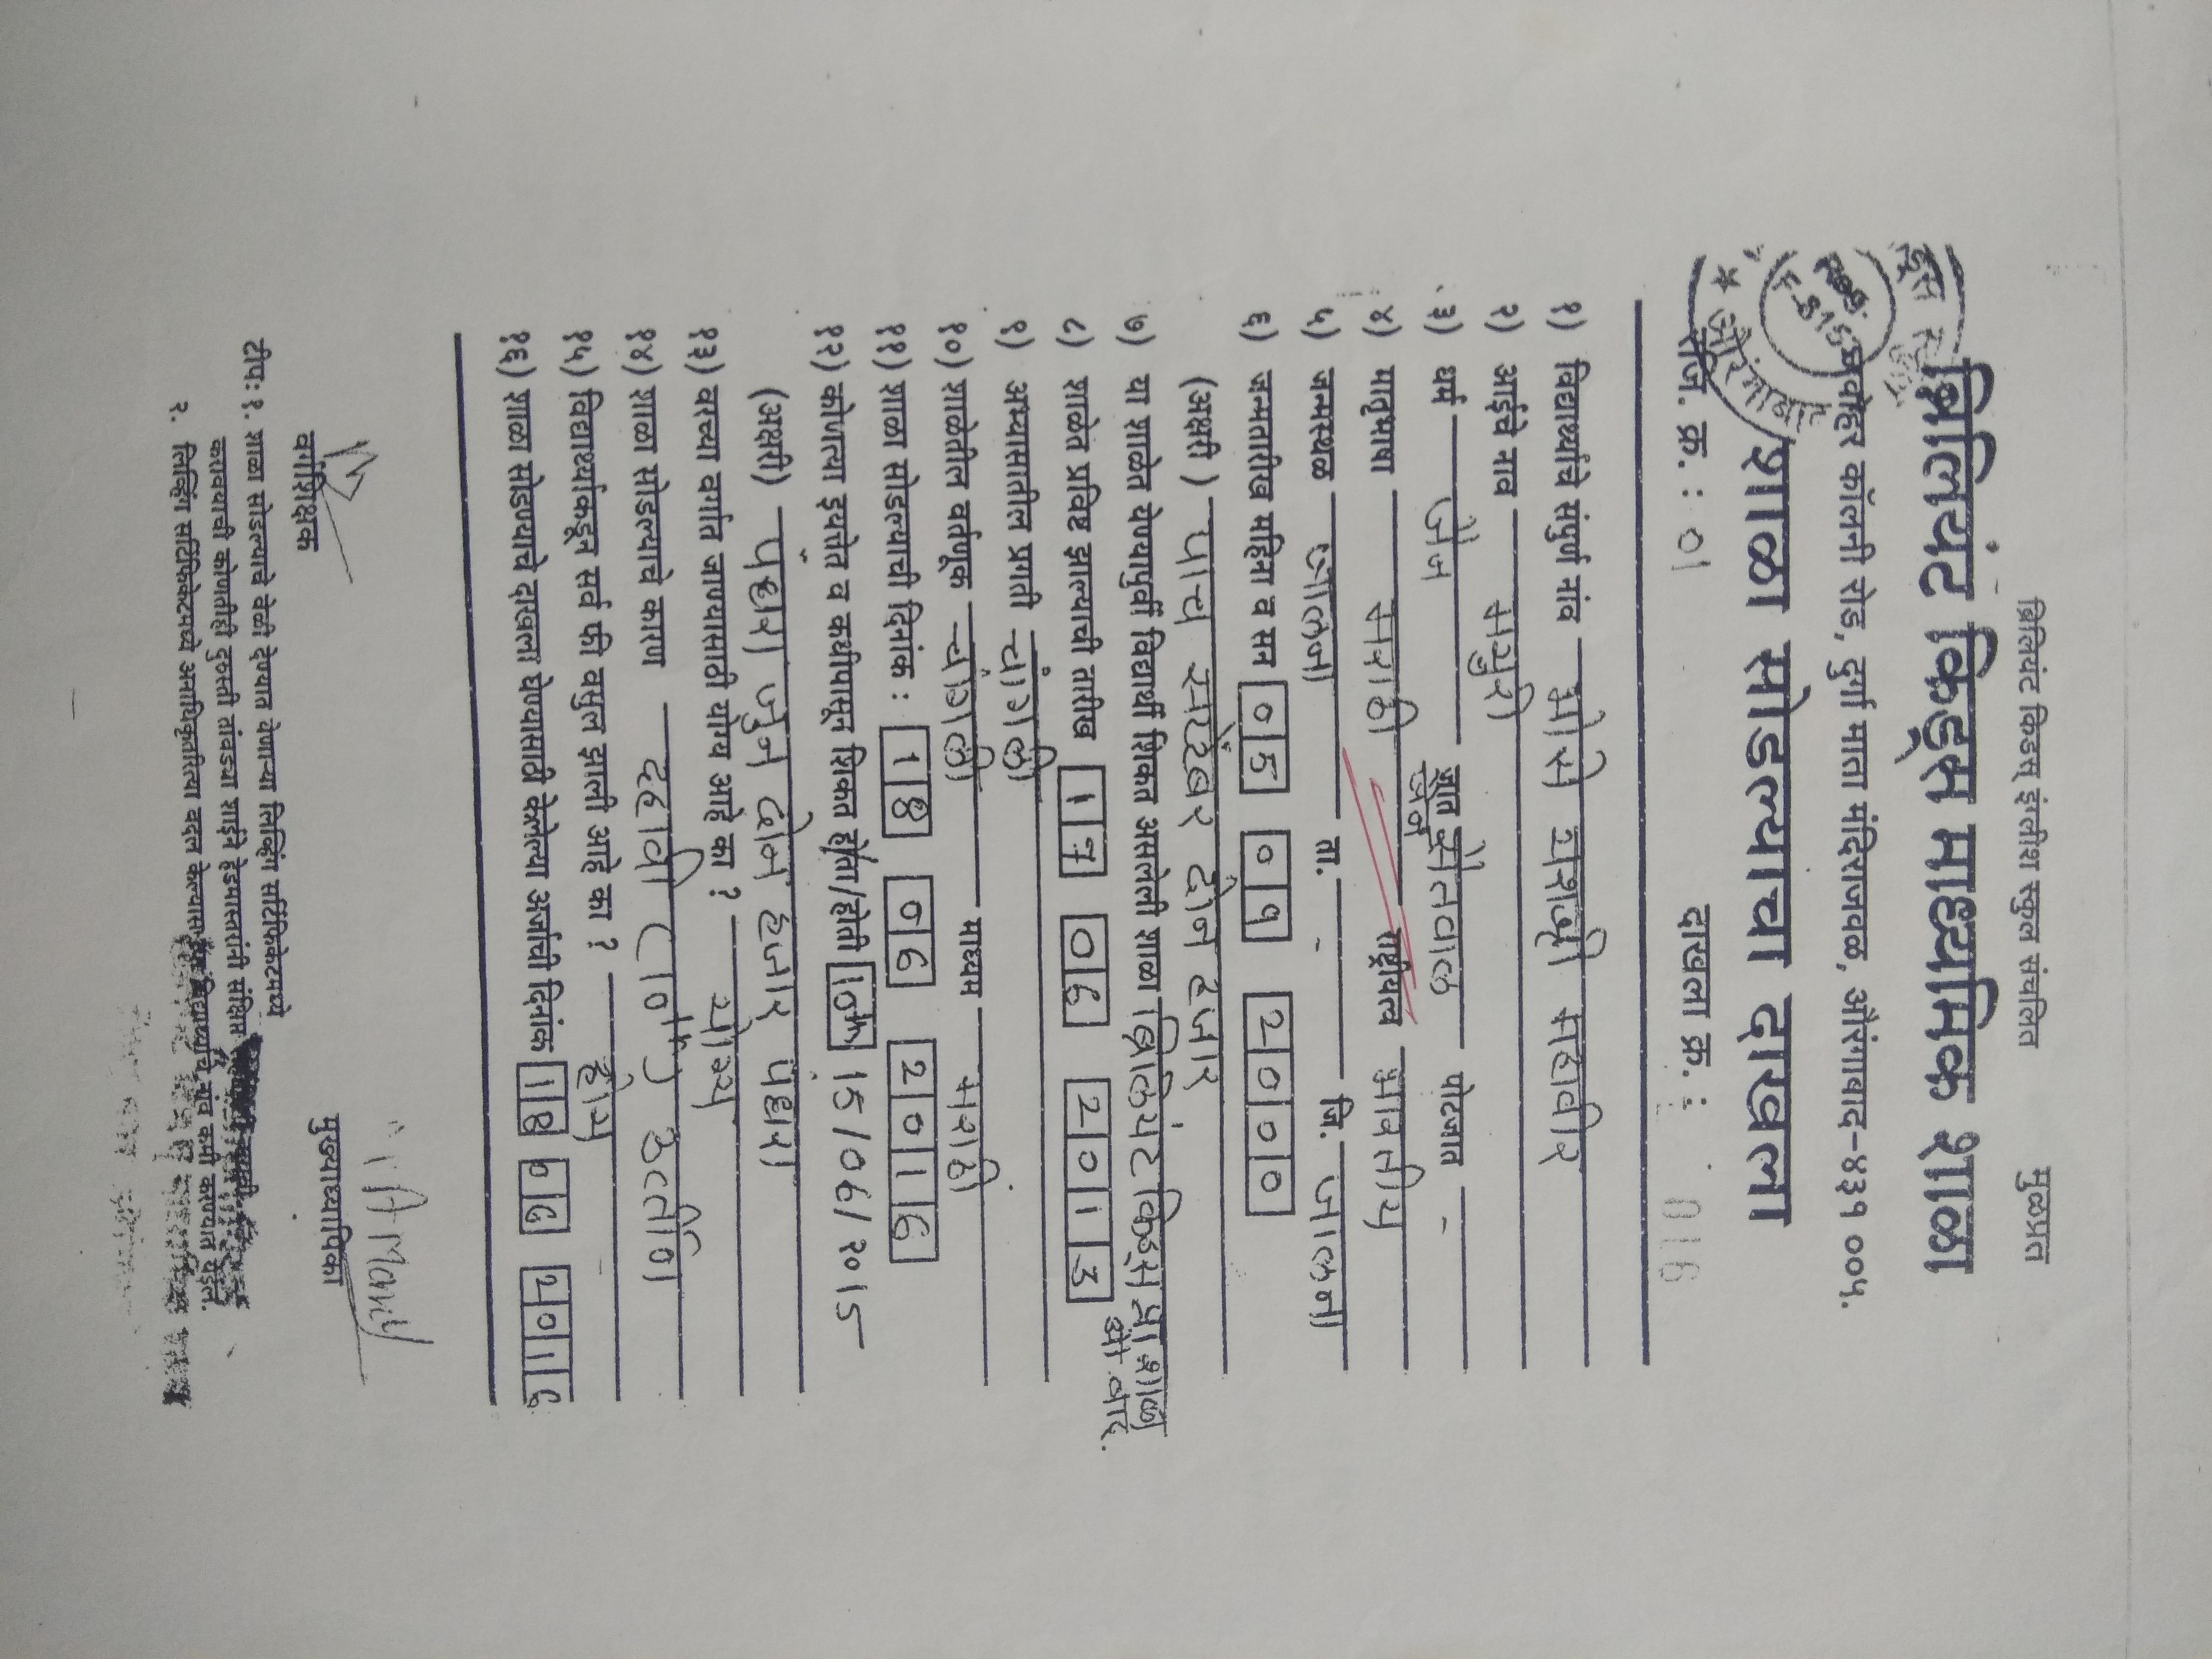 ब्रिलियंट किडस् इंग्लीश स्कुल संचलित
मुळप्रत
ब्रिलियंट किड्स माध्यमिक शाळा
कॉलनी रोड, दुर्गा माता मंदिराजवळ, औरंगाबाद-४३१ ००५.
शाळा सोडल्याचा दाखला
रजि. क्र. : 01 दाखला क्र. : 016
१) विद्यार्थ्याचे संपुर्ण नांव भोसे शशकी महावीर
२) आईचे नाव मयुरी
३) धर्म जैन जात जैन सैतवाल पोटजात -
४) मातृभाषा मराठी राष्ट्रीयत्व भारतीय
५) जन्मस्थळ जालना ता. - जि. जालना
६) जन्मतारीख महिना व सन 05 09 2000
(अक्षरी) पाच सप्टेंबर दोन हजार
७) या शाळेत येण्यापुर्वी विद्यार्थी शिकत असलेली शाळा ब्रिलियंट किड्स प्रा शाळा
औ. बाद.
८) शाळेत प्रविष्ट झाल्याची तारीख 17 06 2013
९) अभ्यासातील प्रगती चांगली
१०) शाळेतील वर्तणूक चांगली माध्यम मराठी
११) शाळा सोडल्याची दिनांक : 18 06 2016
१२) कोणत्या इयत्तेत व कधीपासून शिकत होता/होती 10th 15/06/2015
(अक्षरी) पंधरा जुन दोन हजार पंधरा
१३) वरच्या वर्गात जाण्यासाठी योग्य आहे का ? योग्य
१४) शाळा सोडल्याचे कारण दहावी (10th) उत्तीर्ण
१५) विद्यार्थ्याकडून सर्व फी वसुल झाली आहे का ? होय
१६) शाळा सोडण्याचे दाखला घेण्यासाठी केलेल्या अर्जाची दिनांक 18 06 2016
वर्गशिक्षक मुख्याध्यापिका
टीप: १. शाळा सोडल्याचे वेळी देण्यात येणाऱ्या लिव्हिंग सर्टिफिकेटमध्ये
काववयाची कोणतीही दुरुस्ती तांबड्या शाईने हेडमास्तरांनी संक्षिप्त
२. लिव्हिंग सर्टिफिकेटमध्ये अनाधिकृतरित्या बदल केल्यास विद्यार्थ्याचे नाव कमी करण्यात येईल.